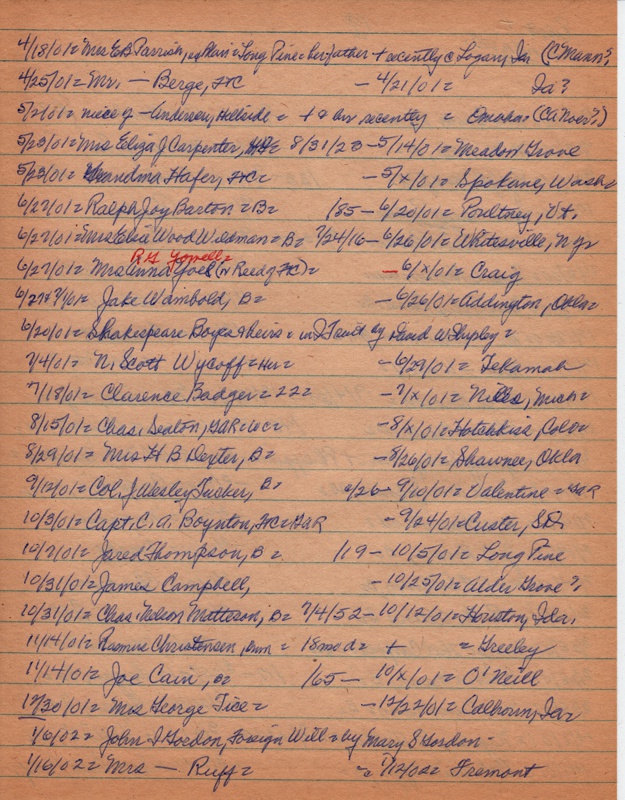 4/18/01= Mrs E B Parrish, = Long Pine = her father + recently @ Logan, Ia (C Mann?)
4/25/01= Mr. — Berge, HC — 4/21/01= Ia?
5/2/01= niece of — Anderson, Hillside = + @ hr recently = Omaha= (Ca Nov?)
5/23/01= Mrs Eliza J Carpenter, 8/31/23 — 5/14/01= Meadow Grove
5/23/01= Grandma Hafer, HC= — 5/x/01= Spokane, Wash=
6/27/01= Ralph Joy Barton = B= /85 — 6/20/01= Poultney, Vt.
6/27/01= Mrs Wood Wildman = B= 7/24/16 — 6/26/01= Whitesville, N Y=
R G Yowell=
6/27/01= Mrs Anna Yoel (nr Reedg HC)= — 6/x/01= Craig
6/27+ /01= Jake Wambold, B= — 6/26/01= Addington, Okla=
6/20/01= Shakespeare Boyes & heirs = in Trust by David W Shipley=
7/4/01= N. Scott Wycoff = — 6/29/01= Tekamah
7/18/01= Clarence Badger = 22= — 7/x/01= Niles, Mich=
8/15/01= Chas. Seaton, GAR = — 8/x/01= Hotchkiss, Colo=
8/29/01= Mrs H B Dexter, B= — 8/26/01= Shawnee, Okla
9/12/01= Col. J Wesley Tucker, B= /26 — 9/10/01= Valentine = GAR
10/3/01= Capt. C. A. Boynton, HC= GAR — 9/24/01= Custer, SD.
10/7/01= Jared Thompson, B= /19 — 10/5/01= Long Pine
10/31/01= James Campbell, — 10/25/01= Alder Grove?
10/31/01= Chas. Nelson Matteson, B= 7/4/52 — 10/12/01= Houston, Ida.
11/14/01= Rasmus Christensen, = 18 mo d= + = Greeley
11/14/01= Joe Cain, B= /65 — 10/x/01= O'Neill
12/20/01= Mrs George Tice= — 12/22/01= Calhoun, Ia=
1/6/02= John I Gordon, Foreign Will = by Mary S Gordon -
1/16/02= Mrs — Ruff= 1/12/02= Fremont